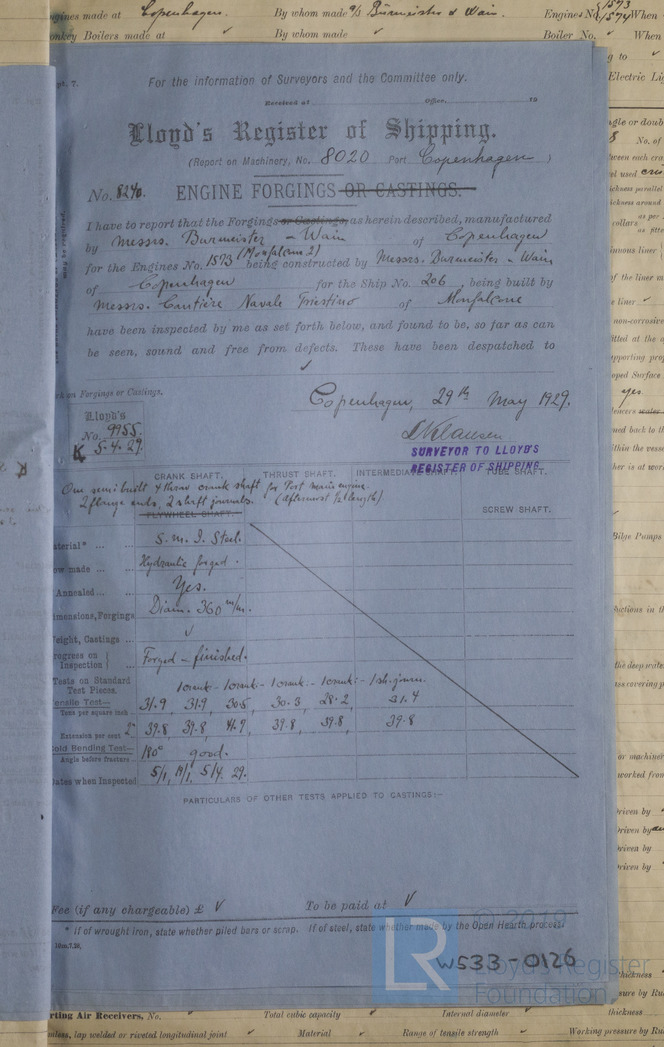 Engines made at Copenhagen. By whom made Burmeister & Wain. Engines No. 1573 1574 When
Donkey Boilers made at ✓ By whom made ✓ Boiler No. ✓ When
For the information of Surveyors and the Committee only.
Received at Office, 19
Lloyd's Register of Shipping.
(Report on Machinery, No. 8020 Port Copenhagen)
No. 8240. ENGINE FORGINGS OR CASTINGS.
I have to report that the Forgings or Castings, as herein described, manufactured
by Messrs. Burmeister & Wain of Copenhagen
for the Engines No. 1573 (Monfalcone 2) being constructed by Messrs. Burmeister & Wain
of Copenhagen for the Ship No. 206, being built by
Messrs. Cantiere Navale Triestino of Monfalcone
have been inspected by me as set forth below, and found to be, so far as can
be seen, sound and free from defects. These have been despatched to
✓
on Forgings or Castings.
Copenhagen, 29th May 1929.
Lloyd's
No. 9955.
5.4.29.
SURVEYOR TO LLOYD'S
REGISTER OF SHIPPING.
CRANK SHAFT. THRUST SHAFT. INTERMEDIATE SHAFT. TUBE SHAFT.
One semibuilt 4 throw crank shaft for Port main engine.
2 flange ends, 2 shaft journals. (aftermost ½ length)
FLYWHEEL SHAFT. SCREW SHAFT.
Material* ... S.M.I. Steel.
How made ... Hydraulic forged.
Annealed ... Yes.
Dimensions, Forgings Diam. 360 m/m.
Weight, Castings ... ✓
Progress on Inspection Forged - finished.
Tests on Standard Test Pieces. 1 crank - 1 crank - 1 crank - 1 crank - 1 sh. journ.
Tensile Test— Tons per square inch 31.9 31.9, 30.5, 30.3, 28.2, 31.4
Extension per cent 2" 39.8 39.8, 41.7, 39.8, 39.8, 39.8
Cold Bending Test— Angle before fracture 180° good.
Dates when Inspected 5/1, 19/1, 5/4. 29.
PARTICULARS OF OTHER TESTS APPLIED TO CASTINGS:—
Fee (if any chargeable) £ ✓ To be paid at ✓
* If of wrought iron, state whether piled bars or scrap. If of steel, state whether made by the Open Hearth process
© 2019
LR
Lloyd's Register
Foundation
W533-0126
Starting Air Receivers, No. Total cubic capacity ✓ Internal diameter ✓ thickness
Seamless, lap welded or riveted longitudinal joint ✓ Material ✓ Range of tensile strength ✓ Working pressure by Ru